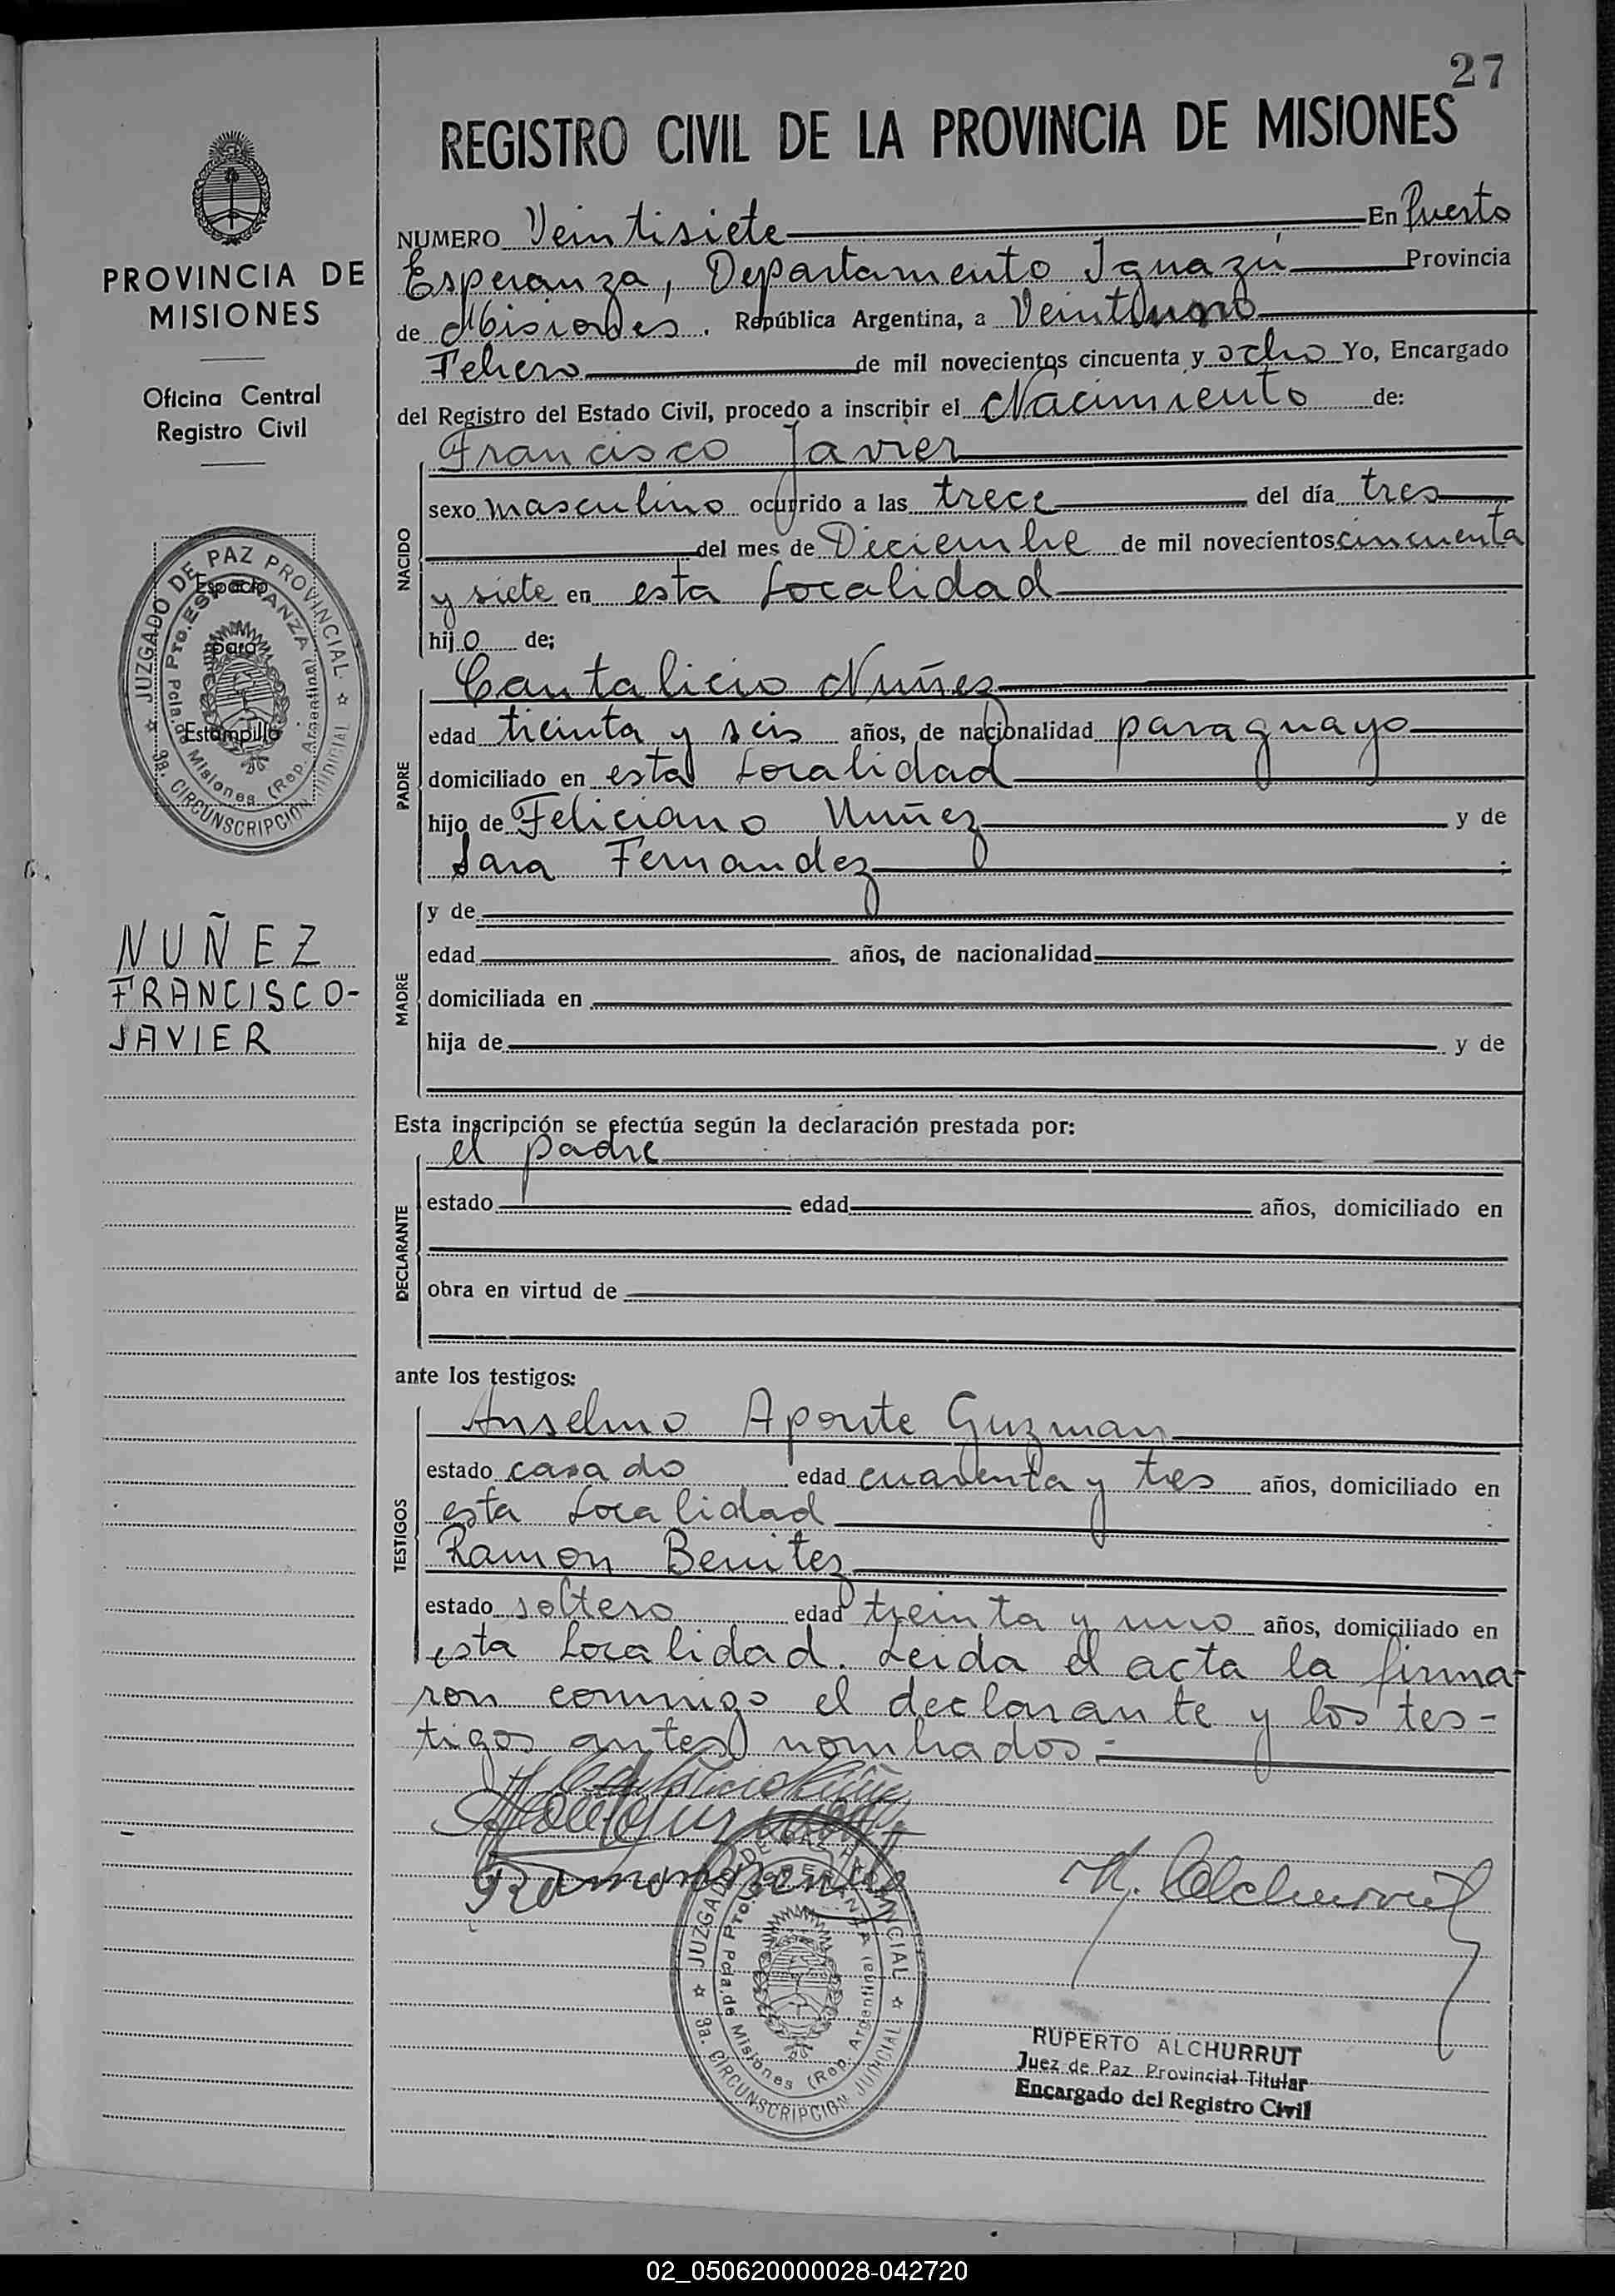 27
REGISTRO CIVIL DE LA PROVINCIA DE MISIONES
PROVINCIA DE
MISIONES
Oficina Central
Registro Civil
JUZGADO DE PAZ PROVINCIAL
Pto. ESPERANZA
Pcia. de Misiones (Rep. Argentina)
3a. CIRCUNSCRIPCION JUDICIAL
Espacio
para
Estampilla
NUÑEZ
FRANCISCO-
JAVIER
NUMERO Veintisiete En Puerto
Esperanza, Departamento Iguazú Provincia
de Misiones. República Argentina, a Veintiuno
Febrero de mil novecientos cincuenta y ocho Yo, Encargado
del Registro del Estado Civil, procedo a inscribir el Nacimiento de:
NACIDO
Francisco Javier
sexo masculino ocurrido a las trece del día tres
del mes de Diciembre de mil novecientos cincuenta
y siete en esta Localidad
hijo de;
PADRE
Cantalicio Nuñez
edad treinta y seis años, de nacionalidad paraguayo
domiciliado en esta Localidad
hijo de Feliciano Nuñez y de
Sara Fernandez
MADRE
y de
edad años, de nacionalidad
domiciliada en
hija de y de
Esta inscripción se efectúa según la declaración prestada por:
DECLARANTE
el padre
estado edad años, domiciliado en
obra en virtud de
ante los testigos:
TESTIGOS
Anselmo Aponte Guzman
estado casado edad cuarenta y tres años, domiciliado en
esta Localidad
Ramon Benitez
estado soltero edad treinta y uno años, domiciliado en
esta Localidad. Leida el acta la firma-
ron conmigo el declarante y los tes-
tigos antes nombrados.-
Cantalicio Nuñez
Ramon Benitez
R. Alchurrut
JUZGADO DE PAZ PROVINCIAL
Pto. ESPERANZA
Pcia. de Misiones (Rep. Argentina)
3a. CIRCUNSCRIPCION JUDICIAL
RUPERTO ALCHURRUT
Juez de Paz Provincial Titular
Encargado del Registro Civil
02_050620000028-042720